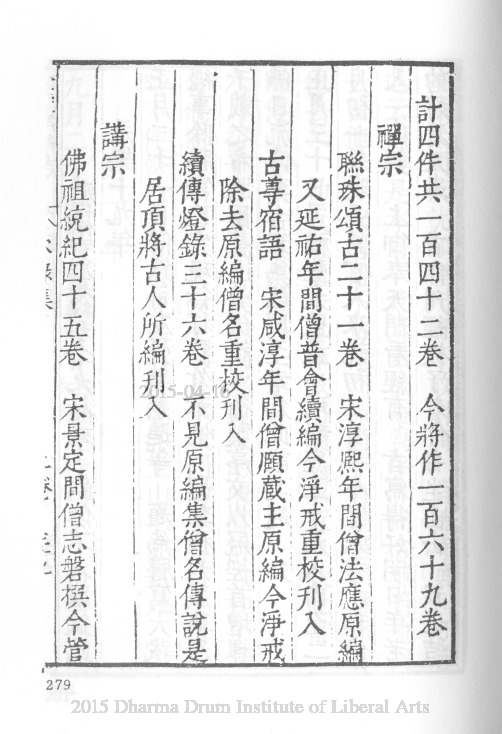 計四件共一百四十二卷　今將作一百六十九卷
禪宗
聯珠頌古二十一卷　宋淳熙年間僧法應原編
又延祐年間僧普會續編今淨戒重校刊入
古尊宿語　宋咸淳年間僧頤蔵主原編今淨戒
除去原編僧名重校刊入
續傳燈錄三十六卷　不見原編集僧名傳說是
居頂將古人所編刊入
講宗
佛祖統紀四十五卷　宋景定間僧志磐撰今管
279
2015-04-10
2015 Dharma Drum Institute of Liberal Arts